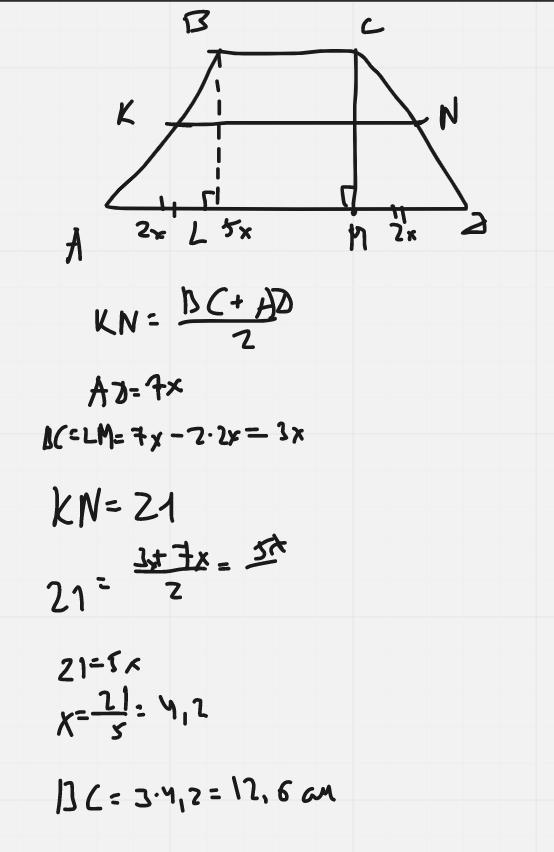 B C
K N
2x L 5x M 2x Д
A
KN = BC + AD / 2
AД = 7x
BC = LM = 7x - 2·2x = 3x
KN = 21
21 = 3x + 7x / 2 = 5x
21 = 5x
x = 21 / 5 = 4,2
BC = 3·4,2 = 12,6 см